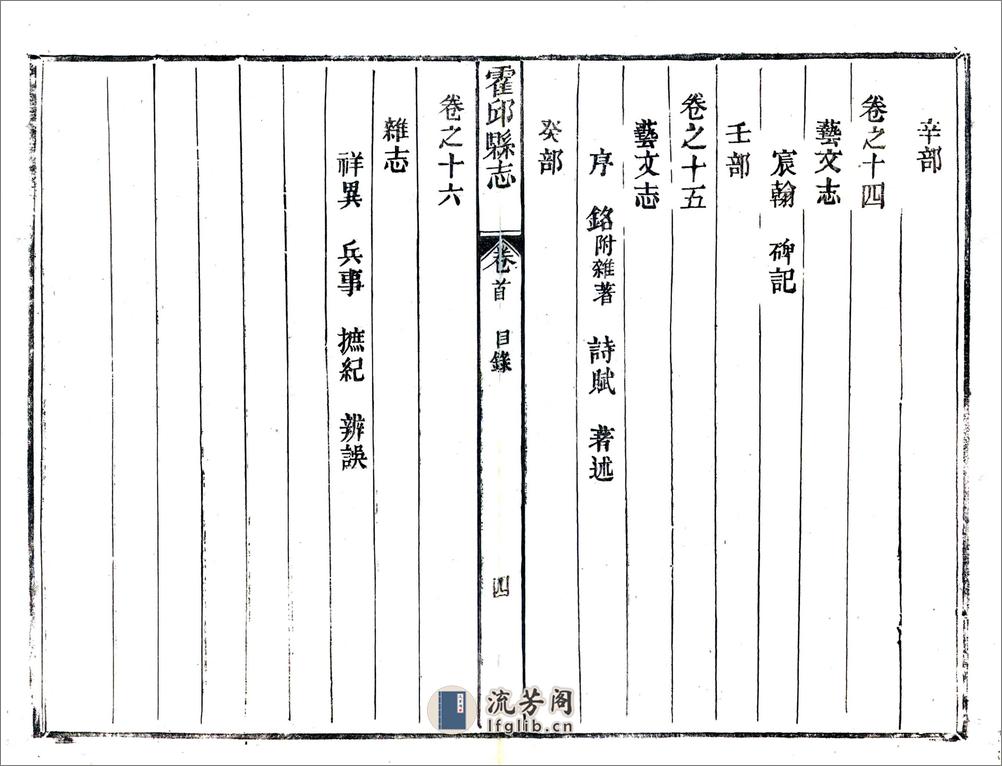 辛部
卷之十四
藝文志
宸翰 碑記
壬部
卷之十五
藝文志
序 銘附雜著 詩賦 著述
癸部
霍邱縣志 卷首 目錄 四
卷之十六
雜志
祥異 兵事 摭紀 辨誤
流芳阁
lfglib.cn